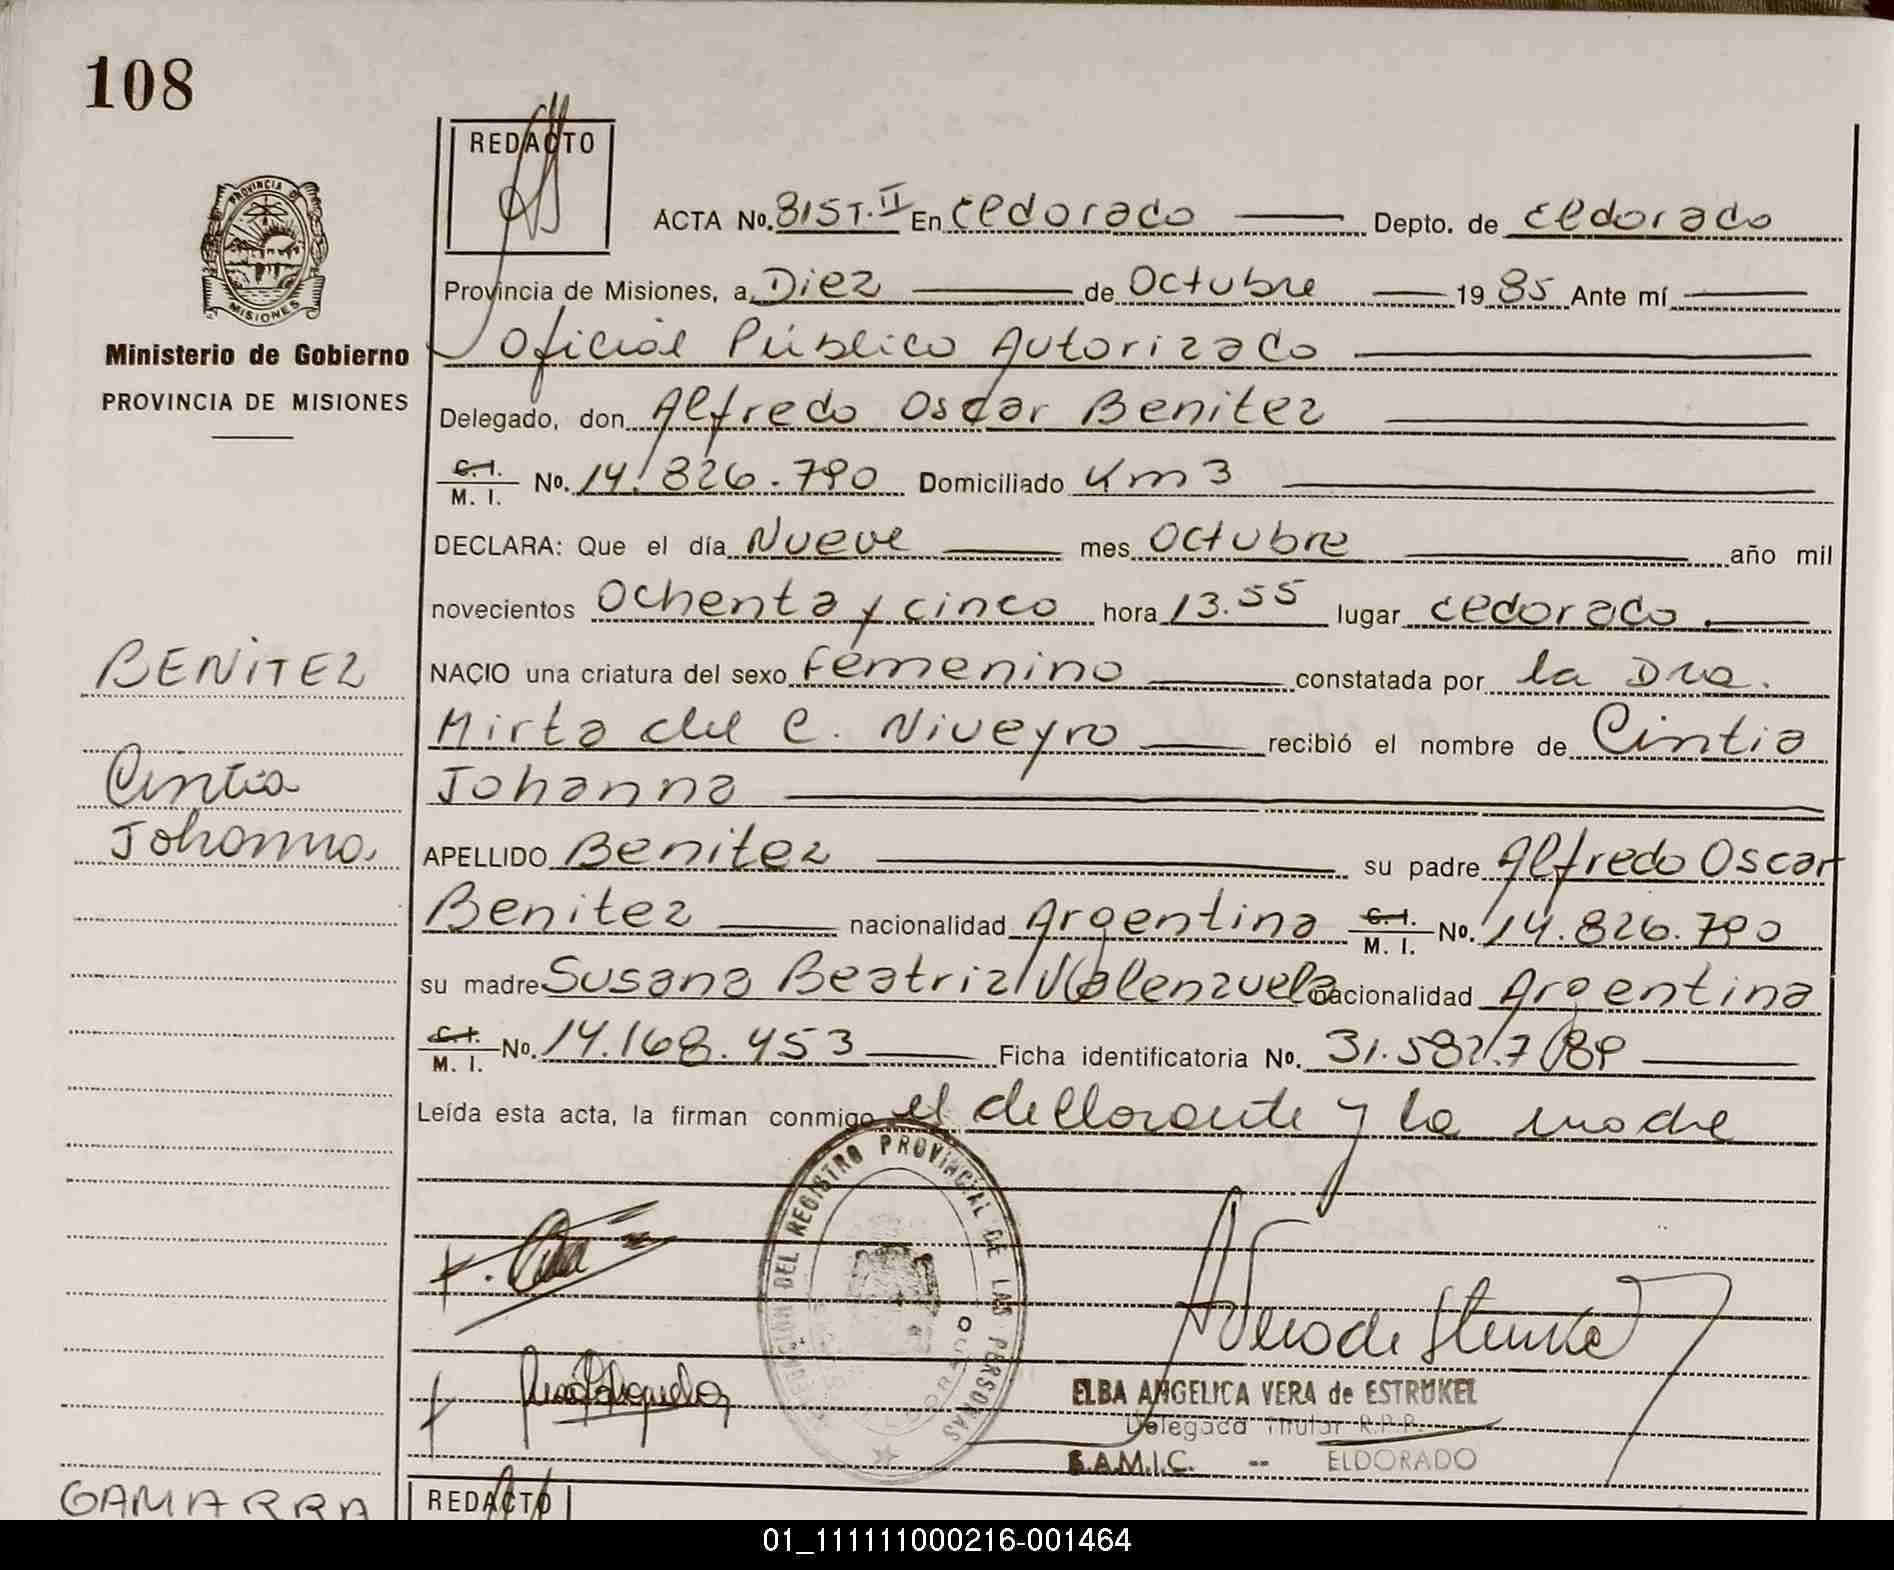 108
REDACTO
PROVINCIA DE
MISIONES
Ministerio de Gobierno
PROVINCIA DE MISIONES
ACTA No. 815 T. II En Eldorado Depto. de Eldorado
Provincia de Misiones, a Diez de Octubre 1985 Ante mí
Oficial Público Autorizado
Delegado, don Alfredo Oscar Benitez
C. I. M. I. No. 14.826.790 Domiciliado Km 3
DECLARA: Que el día Nueve mes Octubre año mil
novecientos Ochenta y cinco hora 13.55 lugar Eldorado.
BENITEZ
NACIO una criatura del sexo femenino constatada por la Dra.
Mirta del C. Niveyro recibió el nombre de Cintia
Cintia
Johanna
Johanna.
APELLIDO Benitez su padre Alfredo Oscar
Benitez nacionalidad Argentina C. I. M. I. No. 14.826.790
su madre Susana Beatriz Valenzuela nacionalidad Argentina
C. I. M. I. No. 14.168.453 Ficha identificatoria No.
Leída esta acta, la firman conmigo el declarante y la madre
DEL REGISTRO PROVINCIAL DE LAS PERSONAS
ELDORADO
ELBA ANGELICA VERA de ESTRUKEL
Delegada Titular R.P.P.
S.A.M.I.C. -- ELDORADO
GAMARRA
REDACTO
01_111111000216-001464